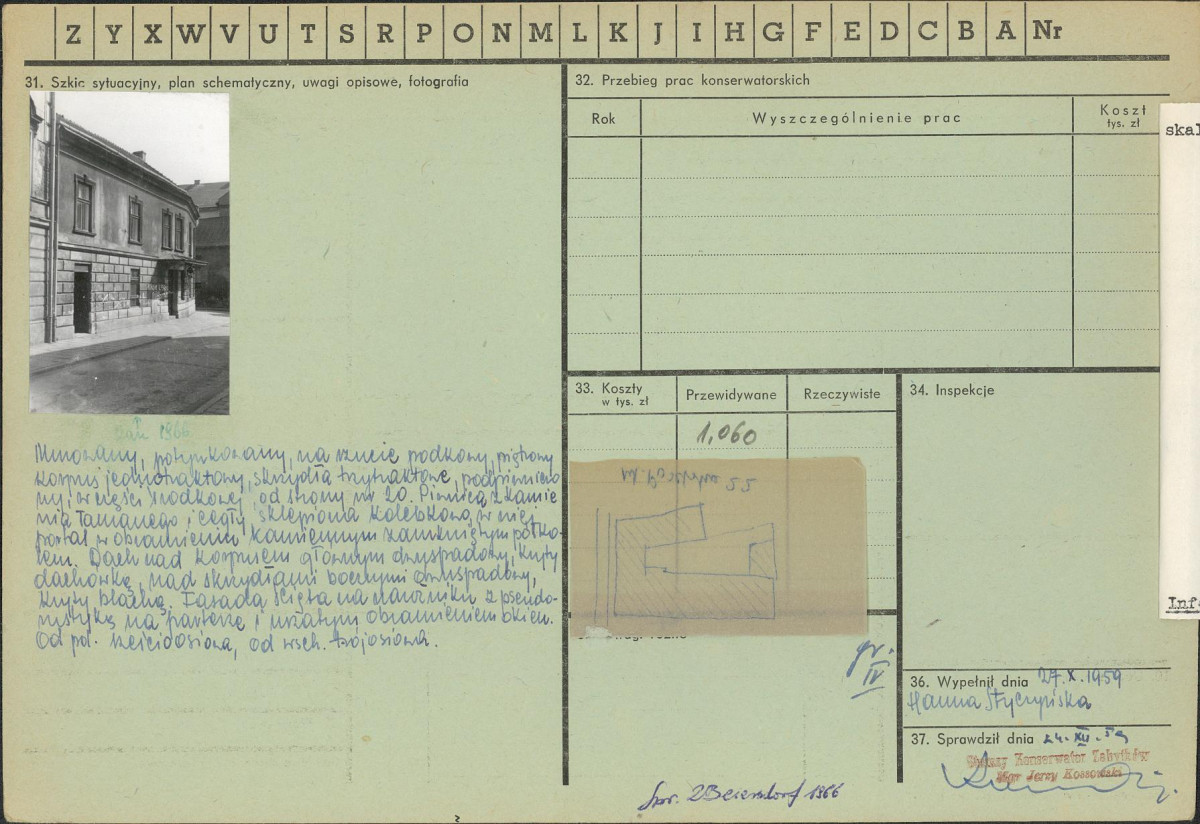 Z Y X W V U T S R P O N M L K J I H G F E D C B A Nr
31. Szkic sytuacyjny, plan schematyczny, uwagi opisowe, fotografia
1966
Murowany, potynkowany, na rzucie podkowy, piętrowy
korpus jednotraktowy, skrzydła trzytraktowe, podpiwniczo
ny, w części środkowej, od strony nr 20. Piwnica z kamie
nia łamanego i cegły, sklepiona kolebkowo, w niej
portal w obramieniu kamiennym zamkniętym półko-
lem. Dach nad korpusem głównym dwuspadowy, kryty
dachówką, nad skrzydłami bocznymi dwuspadowy,
kryty blachą. Fasada ścięta na narożniku z pseudo-
rustyką na parterze i uszatym obramieniem okien.
Od pd. sześcioosiowa, od wsch. trójosiowa.
32. Przebieg prac konserwatorskich
Rok
Wyszczególnienie prac
Koszt
tys. zł
skal
33. Koszty
w tys. zł
Przewidywane
Rzeczywiste
1,060
34. Inspekcje
Inf
gr.
IV
36. Wypełnił dnia 27.X.1959
Hanna Styczyńska
37. Sprawdził dnia 24.XII.59
Starszy Konserwator Zabytków
Mgr Jerzy Kossowski
Spr. Z Beiersdorf 1966